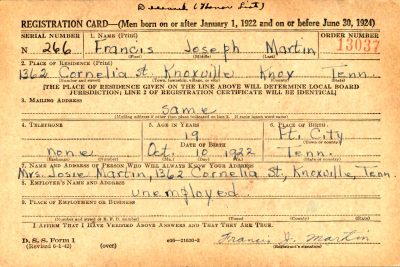 Deceased (Honor List)
REGISTRATION CARD—(Men born on or after January 1, 1922 and on or before June 30, 1924)
SERIAL NUMBER 1. NAME (Print) ORDER NUMBER
N 266 Francis Joseph Martin 13037
(First) (Middle) (Last)
2. PLACE OF RESIDENCE (Print)
1362 Cornelia St. Knoxville Knox Tenn.
(Number and street) (Town, township, village, or city) (County) (State)
[THE PLACE OF RESIDENCE GIVEN ON THE LINE ABOVE WILL DETERMINE LOCAL BOARD
JURISDICTION; LINE 2 OF REGISTRATION CERTIFICATE WILL BE IDENTICAL]
3. MAILING ADDRESS
same
[Mailing address if other than place indicated on line 2. If same insert word same]
4. TELEPHONE 5. AGE IN YEARS 6. PLACE OF BIRTH
19 Ft. City
DATE OF BIRTH (Town or county)
none Oct. 10, 1922 Tenn.
(Exchange) (Number) (Mo.) (Day) (Yr.) (State or country)
7. NAME AND ADDRESS OF PERSON WHO WILL ALWAYS KNOW YOUR ADDRESS
Mrs. Josie Martin, 1362 Cornelia St., Knoxville, Tenn.
8. EMPLOYER'S NAME AND ADDRESS
unemployed
9. PLACE OF EMPLOYMENT OR BUSINESS
(Number and street or R. F. D. number) (Town) (County) (State)
I AFFIRM THAT I HAVE VERIFIED ABOVE ANSWERS AND THAT THEY ARE TRUE.
D. S. S. Form 1 (over) Francis J. Martin
(Revised 6-1-42) (Registrant's signature)